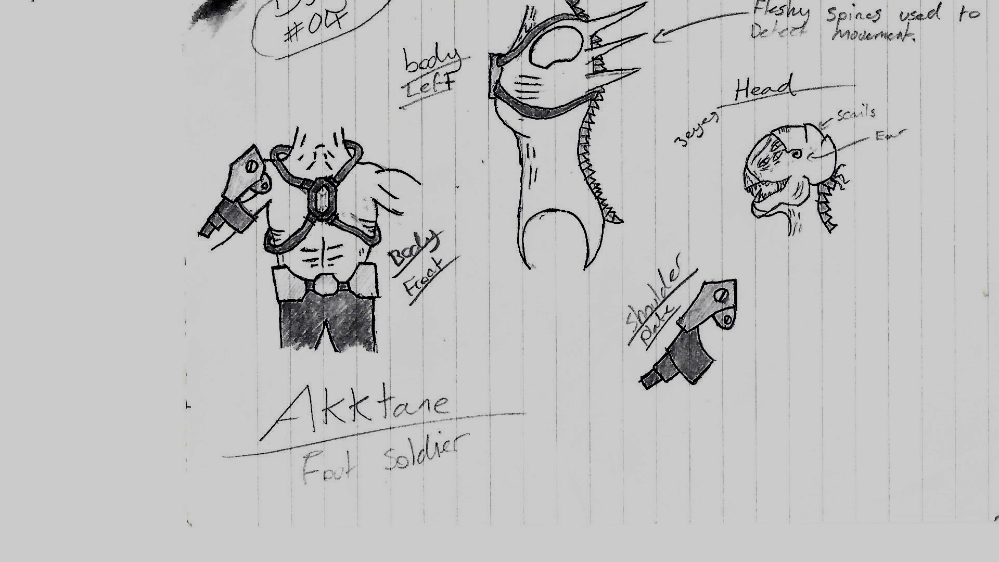 #04
Fleshy Spines used to
Detect movement.
body
Left
Head
3 eyes
Scails
Ear
Body
Front
Shoulder
Plate
Akktane
Foot Soldier